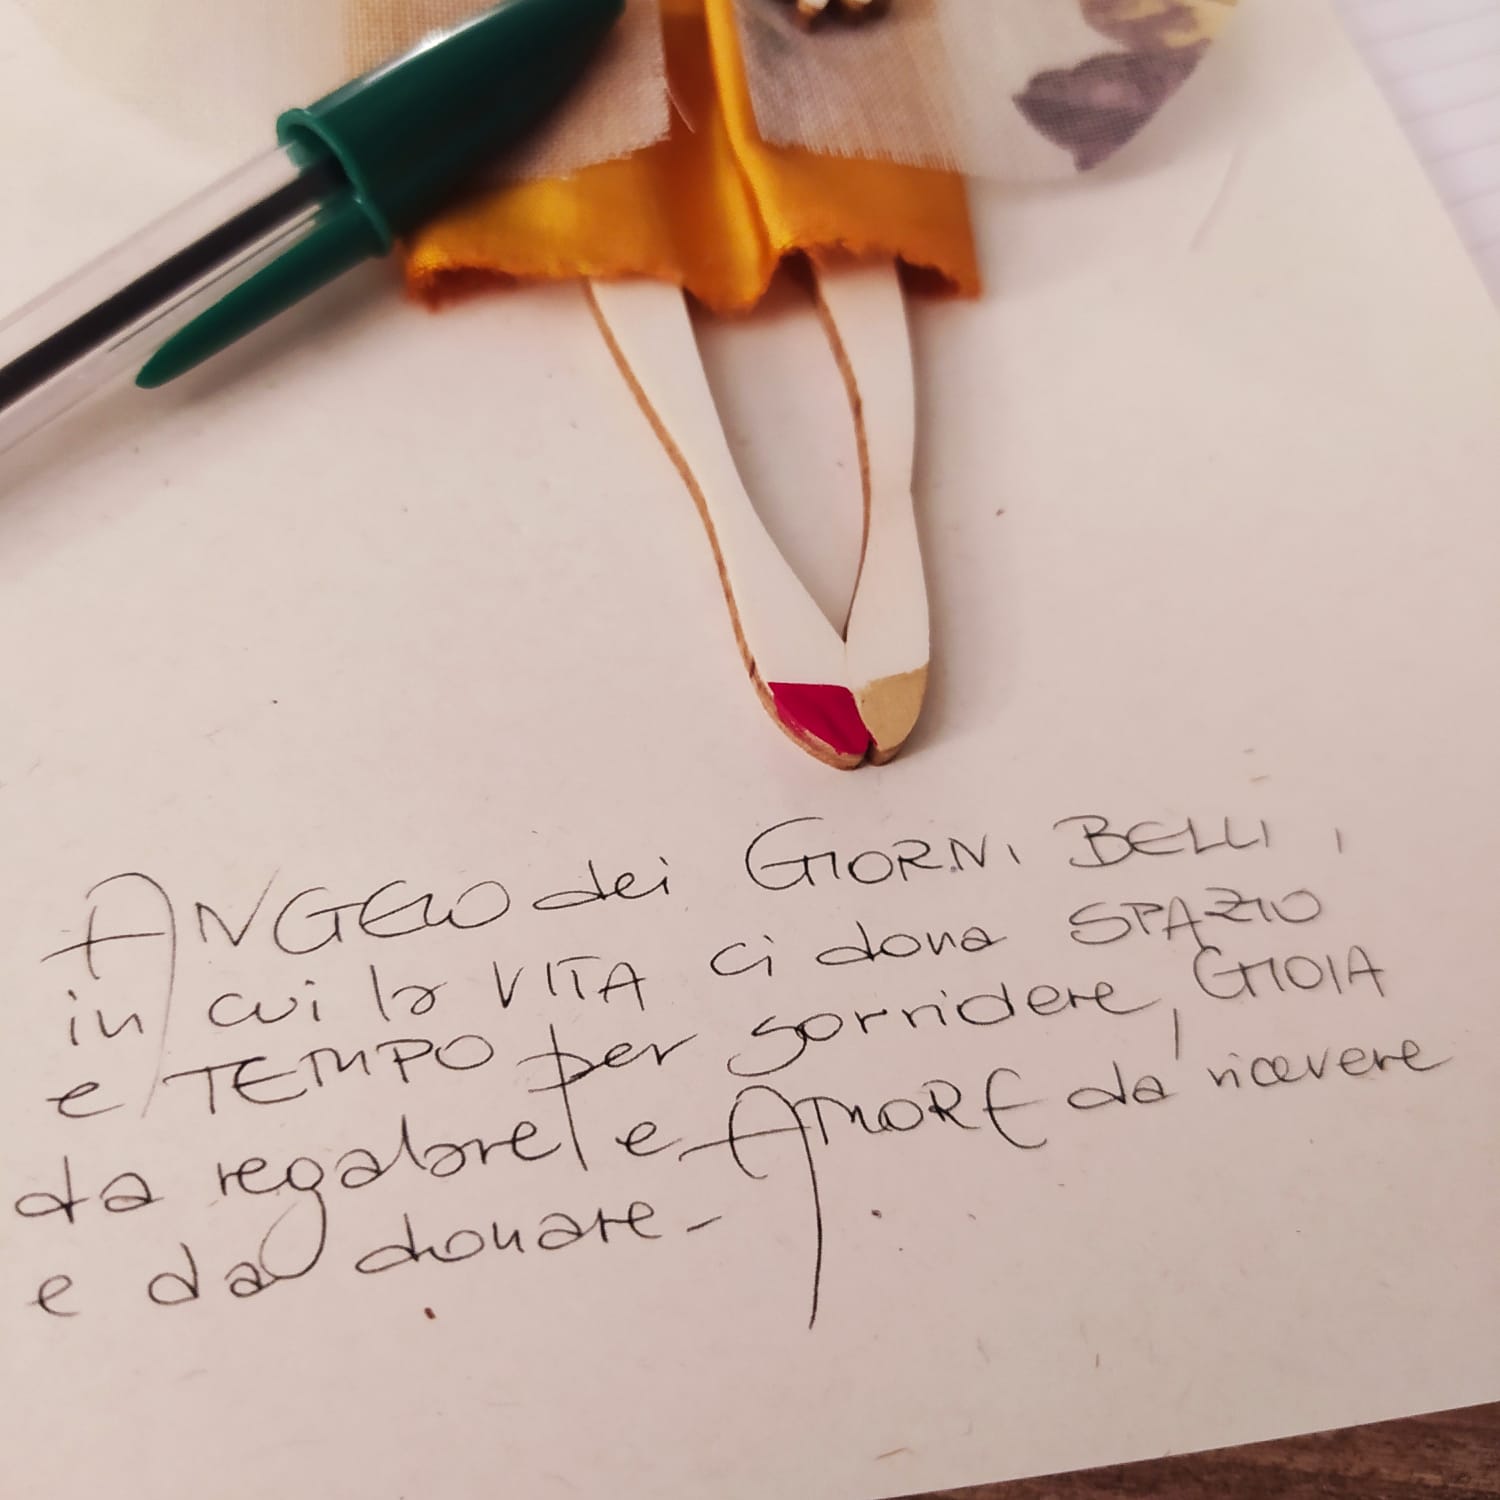 ANGELO dei GIORNI BELLI,
in cui la VITA ci dona SPAZIO
e TEMPO per sorridere, GIOIA
da regalare e AMORE da ricevere
e da donare-